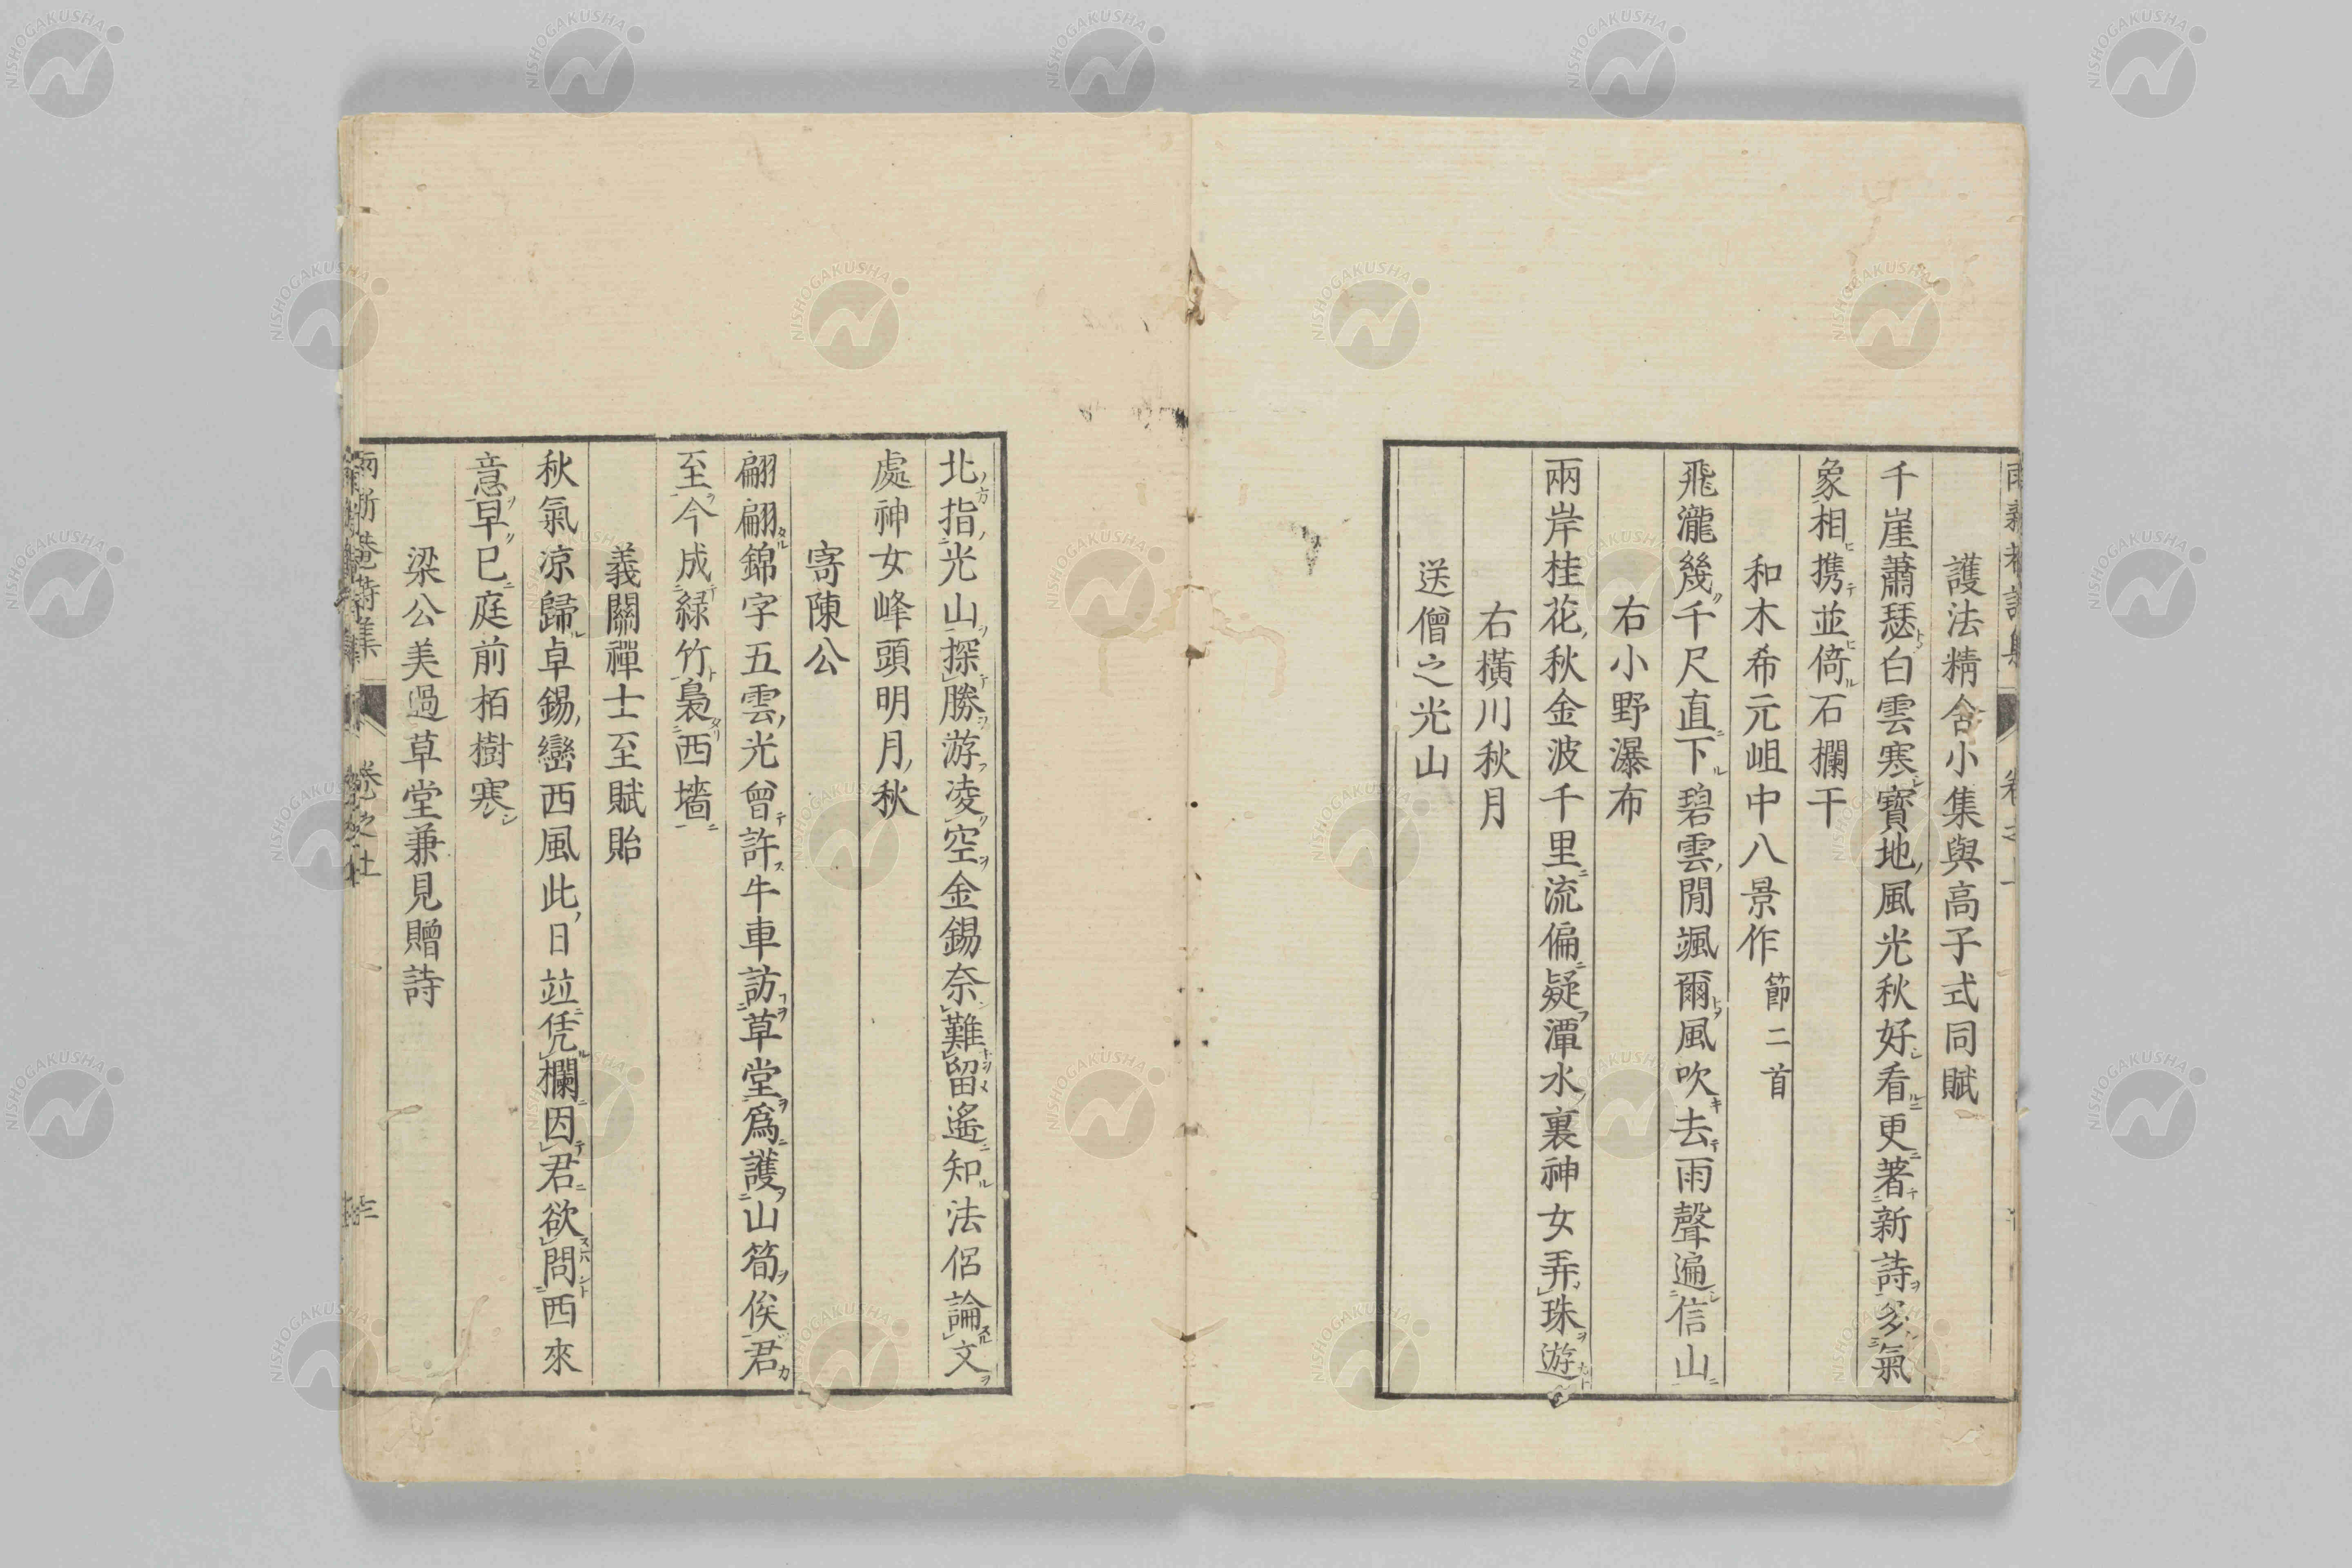 護法精舍小集與高子式同賦
千崖蕭瑟白雲寒寶地風光秋好看更著新詩多氣
象相携並倚石欄干
和木希元岨中八景作 節二首
飛瀧幾千尺直下碧雲閒颯爾風吹去雨聲遍信山
右小野瀑布
兩岸桂花秋金波千里流偏疑潭水裏神女弄珠遊
右橫川秋月
送僧之光山
北指光山探勝游凌空金錫奈難留遙知法侶論文
處神女峰頭明月秋
寄陳公
翩翩錦字五雲光曾許牛車訪草堂爲護山筍俟君
至今成緑竹裊西墻
義關禪士至賦貽
秋氣凉歸卓錫巒西風此日並凭欄因君欲問西來
意早已庭前栢樹寒
梁公美過草堂兼見贈詩